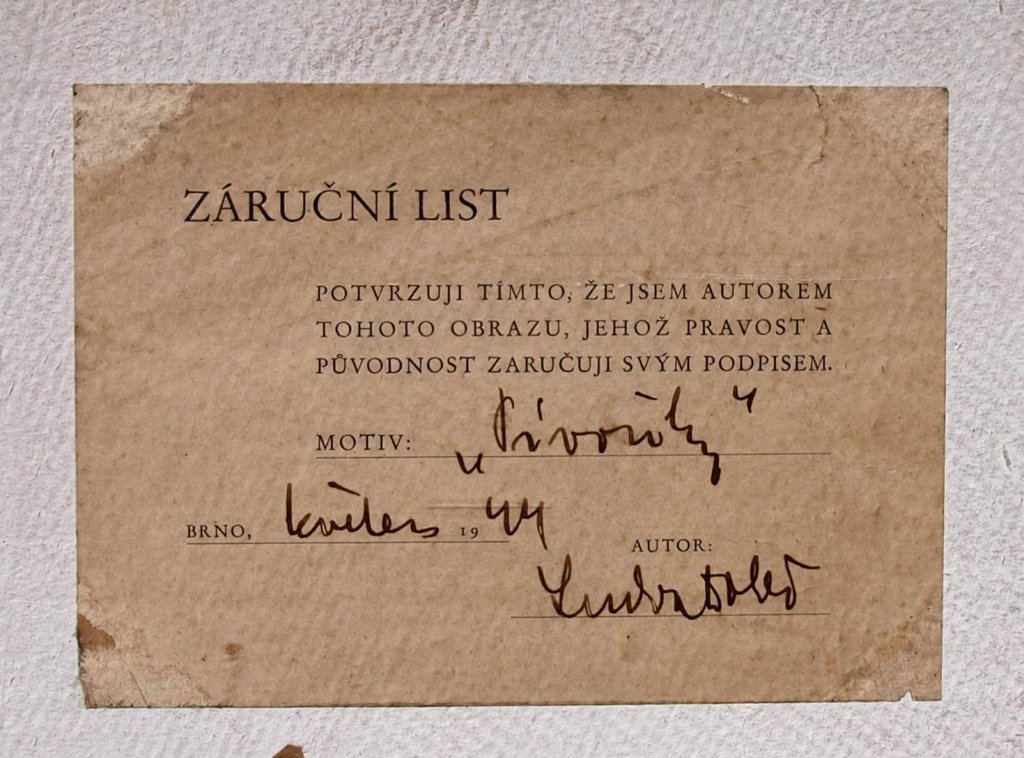 ZÁRUČNÍ LIST
POTVRZUJI TÍMTO, ŽE JSEM AUTOREM
TOHOTO OBRAZU, JEHOŽ PRAVOST A
PŮVODNOST ZARUČUJI SVÝM PODPISEM.
MOTIV: „Pivoňky“
BRNO, květen 1944
AUTOR: